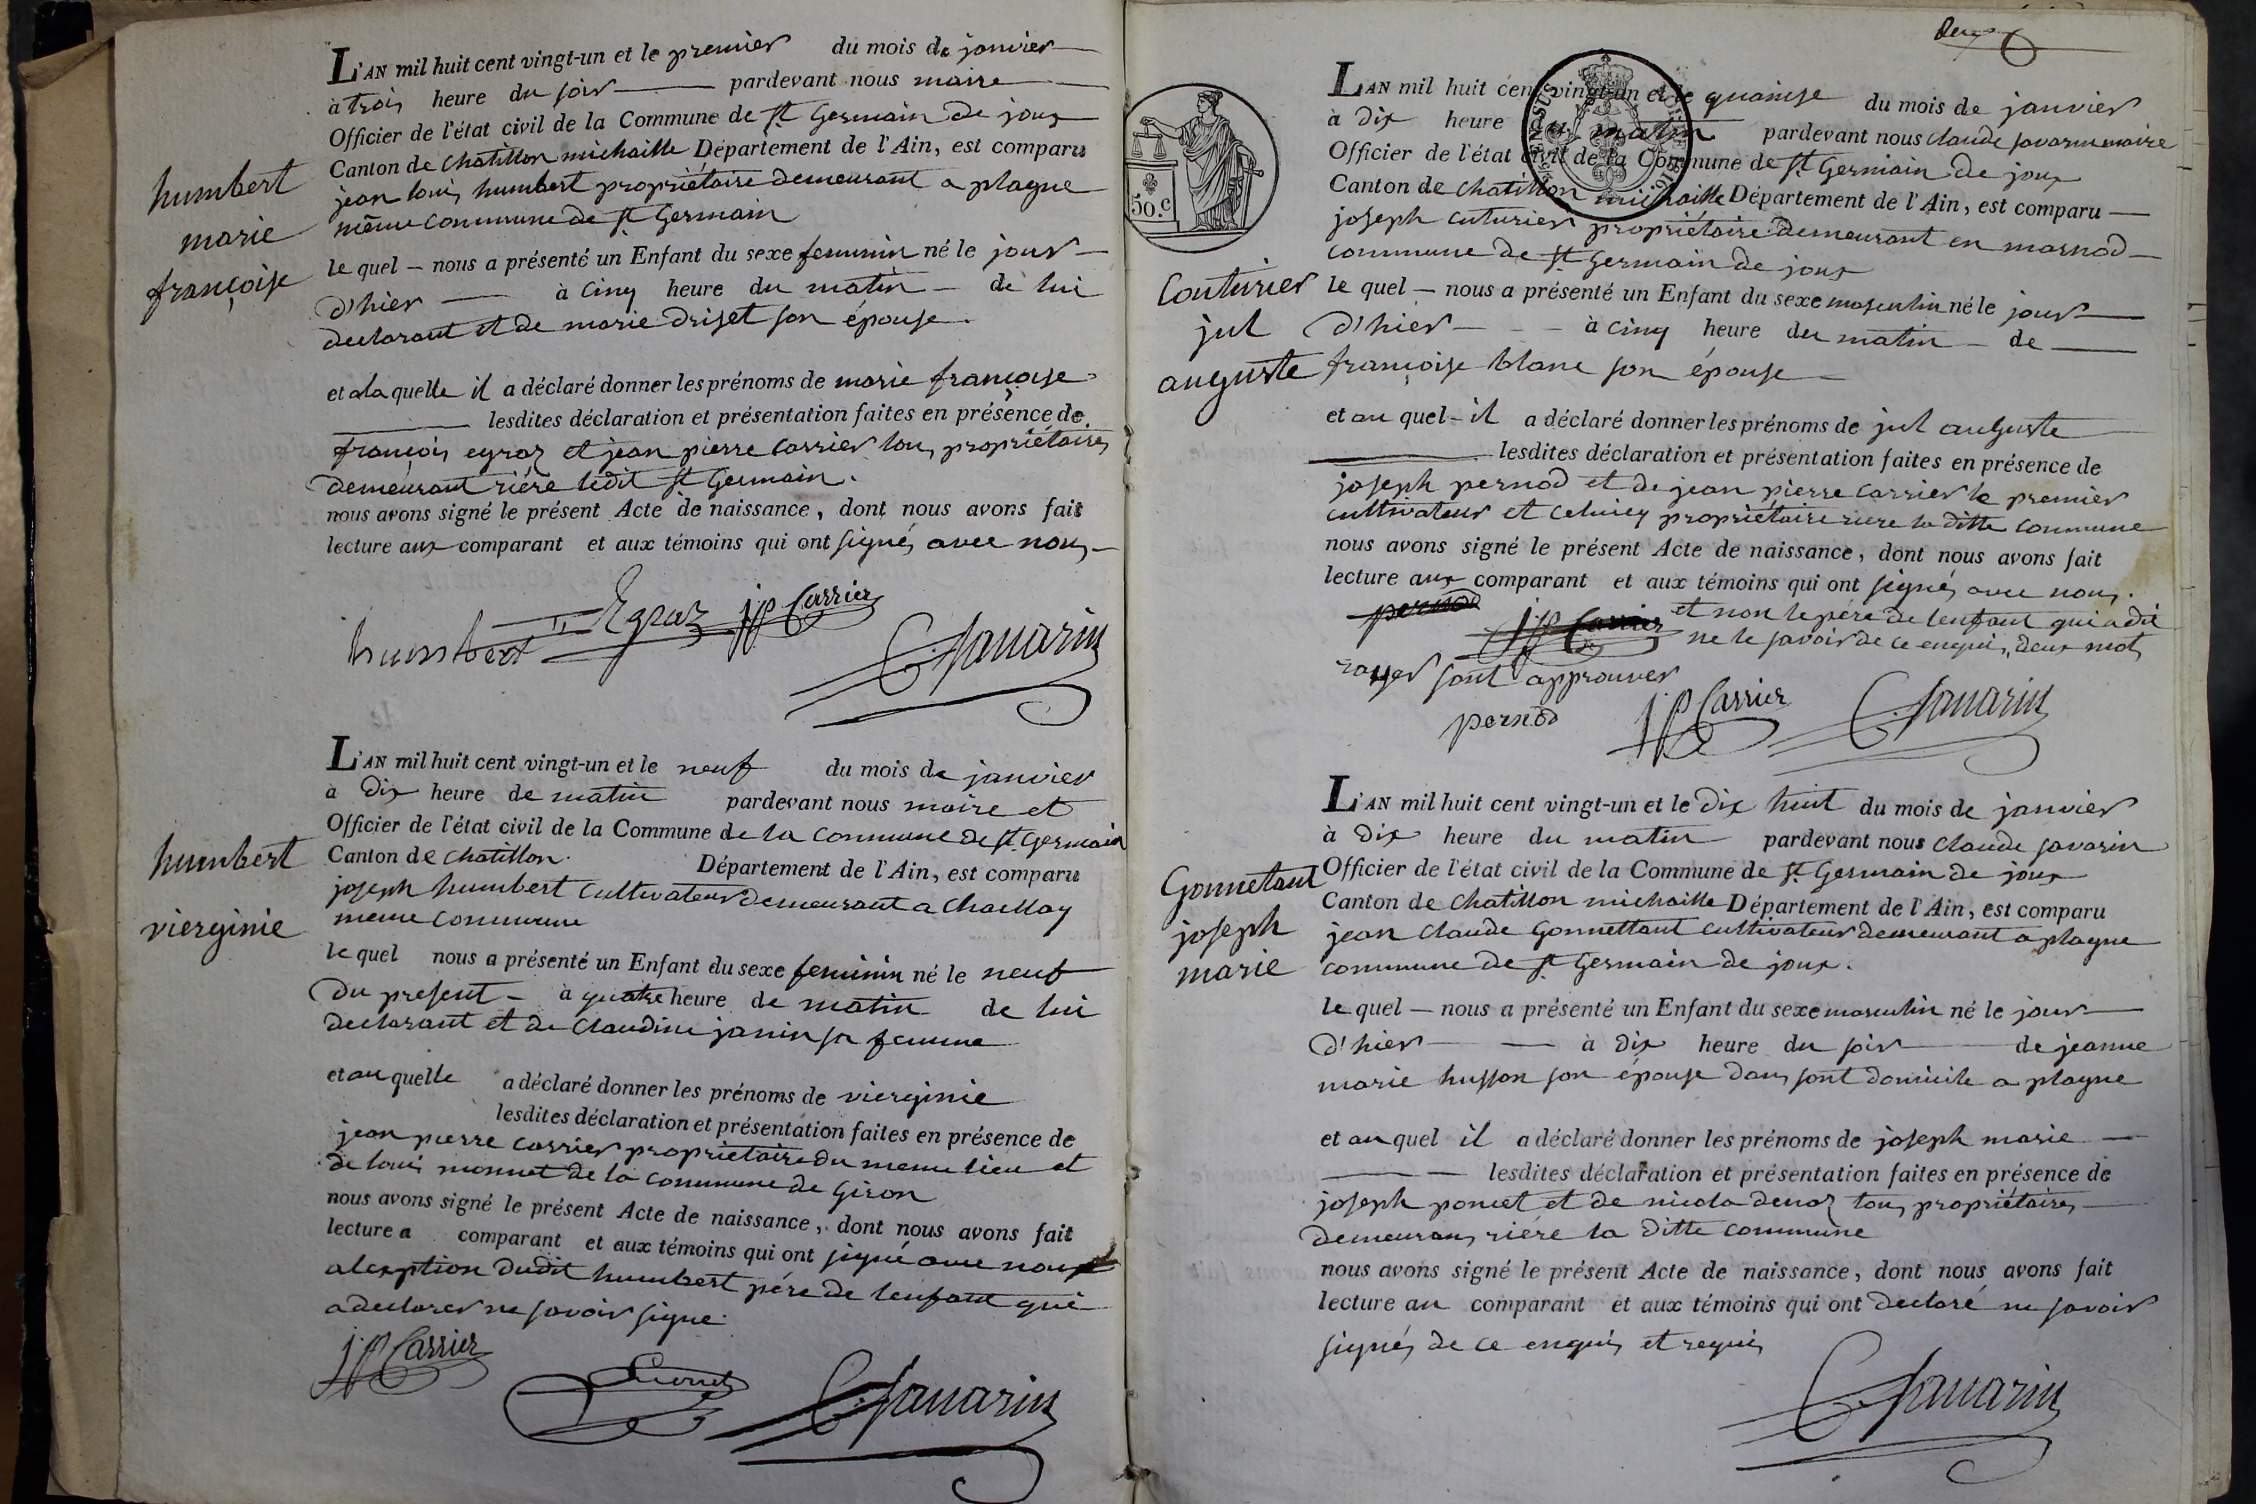 L'AN mil huit cent vingt-un et le premier du mois de janvier
à trois heure du soir pardevant nous maire
Officier de l'état civil de la Commune de St Germain de joux
Canton de chatillon michaille Département de l'Ain, est comparu
jean louis humbert propriétaire demeurant a plagne
même commune de St Germain
humbert
marie
françoise
le quel – nous a présenté un Enfant du sexe feminin né le jour
d'hier à cinq heure du matin – de lui
declarant et de marie driset son épouse.
et a la quelle il a déclaré donner les prénoms de marie françoise
lesdites déclaration et présentation faites en présence de
françois egraz et jean pierre carrier tous propriétaires
demeurant riére ledit St Germain.
nous avons signé le présent Acte de naissance, dont nous avons fait
lecture aux comparant et aux témoins qui ont signés avec nous
humbert Egraz jp Carrier
C. Savarin
L'AN mil huit cent vingt-un et le neuf du mois de janvier
à dix heure de matin pardevant nous maire et
Officier de l'état civil de la Commune de la commune de St Germain
Canton de chatillon. Département de l'Ain, est comparu
joseph humbert cultivateur demeurant a
meme commune
humbert
vierginie
le quel nous a présenté un Enfant du sexe feminin né le neuf
du present – à quatre heure de matin de lui
declarant et de claudine janin sa femme
et au quelle a déclaré donner les prénoms de vierginie
lesdites déclaration et présentation faites en présence de
jean pierre carrier propriétaire du meme lieu et
de louis monnet de la commune de Giron
nous avons signé le présent Acte de naissance, dont nous avons fait
lecture a comparant et aux témoins qui ont signé avec nous
a lexption dudit humbert pére de lenfant qui
a declarer ne savoir signe.
jp Carrier
C. Savarin
deux
L'AN mil huit cent vingt-un et le quainse du mois de janvier
à dix heure du matin pardevant nous claude savarin maire
Officier de l'état civil de la Commune de St Germain de joux
Canton de chatillon michaille Département de l'Ain, est comparu
joseph cuturier propriétaire demeurant en marnod
commune de St Germain de joux
50.c
couturier
jul
auguste
le quel – nous a présenté un Enfant du sexe masculin né le jour
d'hier – à cinq heure du matin – de
françoise blanc son épouse
et au quel – il a déclaré donner les prénoms de jul auguste
lesdites déclaration et présentation faites en présence de
joseph pernod et de jean pierre carrier le premier
cultivateur et celuicy propriétaire riere la ditte commune
nous avons signé le présent Acte de naissance, dont nous avons fait
lecture aux comparant et aux témoins qui ont signés avec nous.
pernod jp Carrier et non le pére de lenfant qui a dit
ne le savoir de ce enquis, deux mot
rayer sont approuver
pernod jp Carrier C. Savarin
L'AN mil huit cent vingt-un et le dix huit du mois de janvier
à dix heure du matin pardevant nous claude savarin
Officier de l'état civil de la Commune de St Germain de joux
Canton de chatillon michaille Département de l'Ain, est comparu
jean claude Gonnettant cultivateur demeurant a plagne
commune de St Germain de joux.
Gonnetant
joseph
marie
le quel – nous a présenté un Enfant du sexe masculin né le jour
d'hier – à dix heure du soir de jeanne
marie husson son épouse dans sont domicile a plagne
et au quel il a déclaré donner les prénoms de joseph marie
lesdites déclaration et présentation faites en présence de
joseph poncet et de nicola denoz tous propriétaires
demeurans riére la ditte commune
nous avons signé le présent Acte de naissance, dont nous avons fait
lecture au comparant et aux témoins qui ont declaré ne savoir
signés de ce enquis et requis
C. Savarin